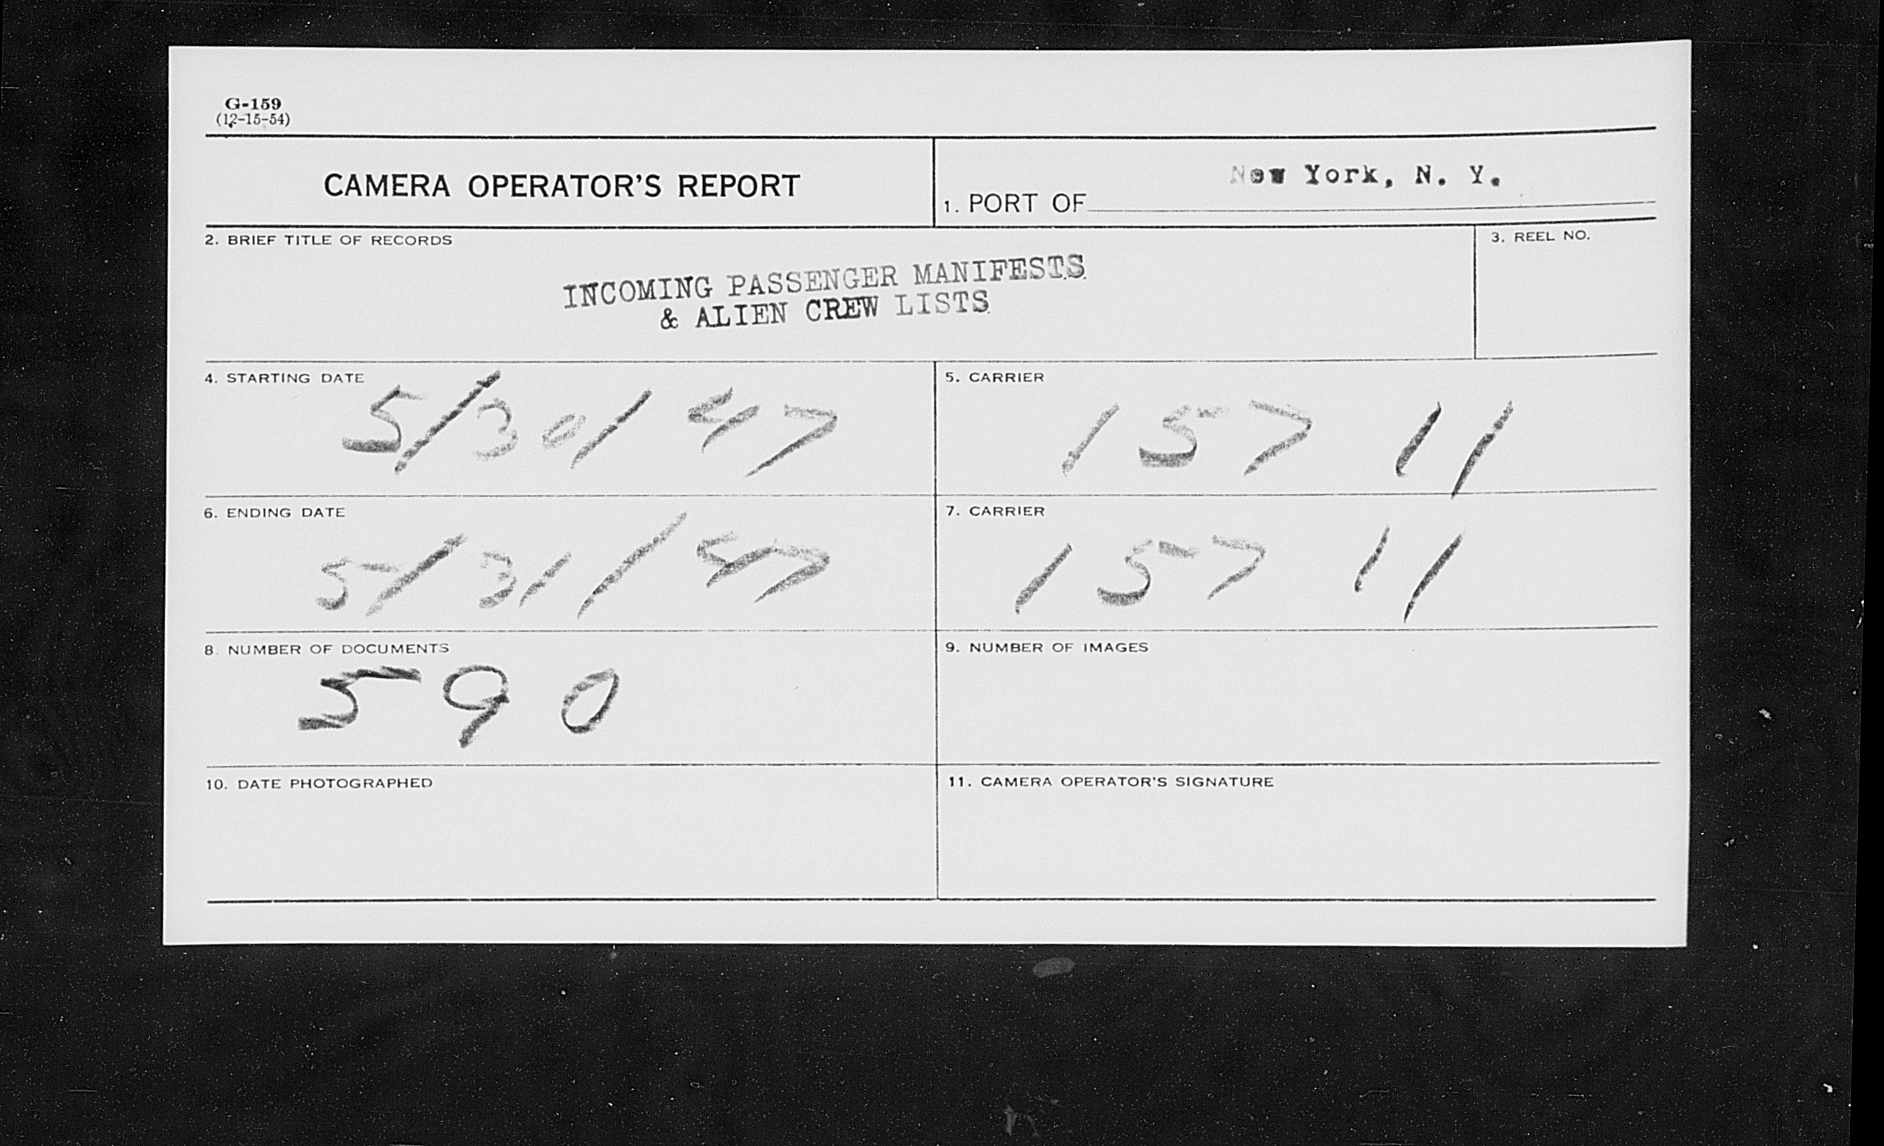 G-159
(12-15-54)
CAMERA OPERATOR'S REPORT
1. PORT OF New York, N. Y.
2. BRIEF TITLE OF RECORDS
INCOMING PASSENGER MANIFESTS
& ALIEN CREW LISTS
3. REEL NO.
4. STARTING DATE
5/30/47
5. CARRIER
157 11
6. ENDING DATE
5/31/47
7. CARRIER
157 11
8. NUMBER OF DOCUMENTS
590
9. NUMBER OF IMAGES
10. DATE PHOTOGRAPHED
11. CAMERA OPERATOR'S SIGNATURE